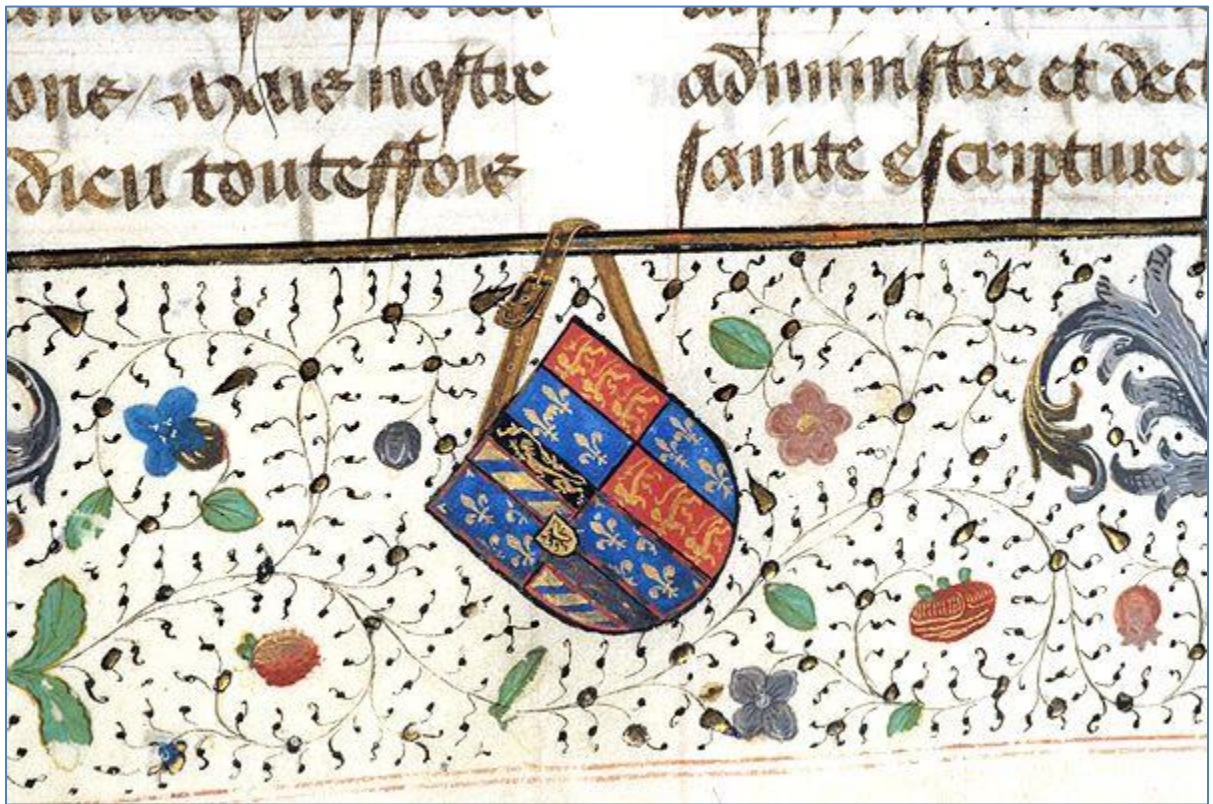 ons / Mais nostre
dieu touteffois
administre et dec
sainte escripture